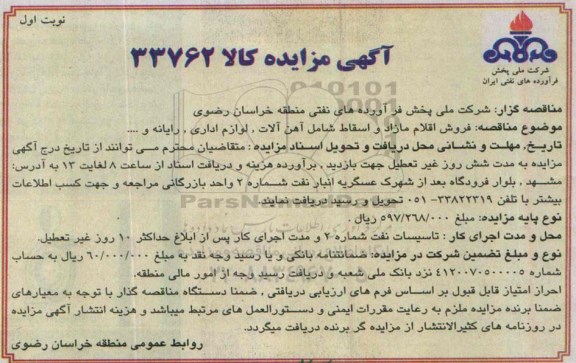 نوبت اول
شرکت ملی پخش
فرآورده های نفتی ایران
آگهی مزایده کالا ۳۳۷۶۲
مناقصه گزار: شرکت ملی پخش فرآورده های نفتی منطقه خراسان رضوی
موضوع مناقصه: فروش اقلام مازاد و اسقاط شامل آهن آلات ، لوازم اداری ، رایانه و ....
تاریخ، مهلت و نشانی محل دریافت و تحویل اسناد مزایده : متقاضیان محترم می توانند از تاریخ درج آگهی
مزایده به مدت شش روز غیر تعطیل جهت بازدید ، برآورده هزینه و دریافت اسناد از ساعت ۸ لغایت ۱۳ به آدرس:
مشهد ، بلوار فرودگاه بعد از شهرک عسگریه انبار نفت شماره ۲ واحد بازرگانی مراجعه و جهت کسب اطلاعات
بیشتر با تلفن ۳۳۸۲۲۳۱۹- ۰۵۱ تحویل و رسید دریافت نمایند.
نوع پایه مزایده: مبلغ ۵۹۷/۲۶۸/۰۰۰ ریال .
محل و مدت اجرای کار : تاسیسات نفت شماره ۲ و مدت اجرای کار پس از ابلاغ حداکثر ۱۰ روز غیر تعطیل.
نوع و مبلغ تضمین شرکت در مزایده: ضمانتنامه بانکی و یا رسید وجه نقد به مبلغ ۶۰/۰۰۰/۰۰۰ ریال به حساب
شماره ۴۱۲۰۰۷۵۰۰۰۰۵ نزد بانک ملی شعبه و دریافت رسید وجه از امور مالی منطقه.
احراز امتیاز قابل قبول بر اساس فرم های ارزیابی دریافتی , ضمنا دستگاه مناقصه گذار با توجه به معیارهای
ضمنا برنده مزایده ملزم به رعایت مقررات ایمنی و دستورالعمل های مرتبط میباشد و هزینه انتشار آگهی مزایده
در روزنامه های کثیرالانتشار از مزایده گر برنده دریافت میگردد.
روابط عمومی منطقه خراسان رضوی